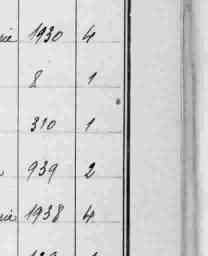 1930 4
8 1
310 1
939 2
1938 4